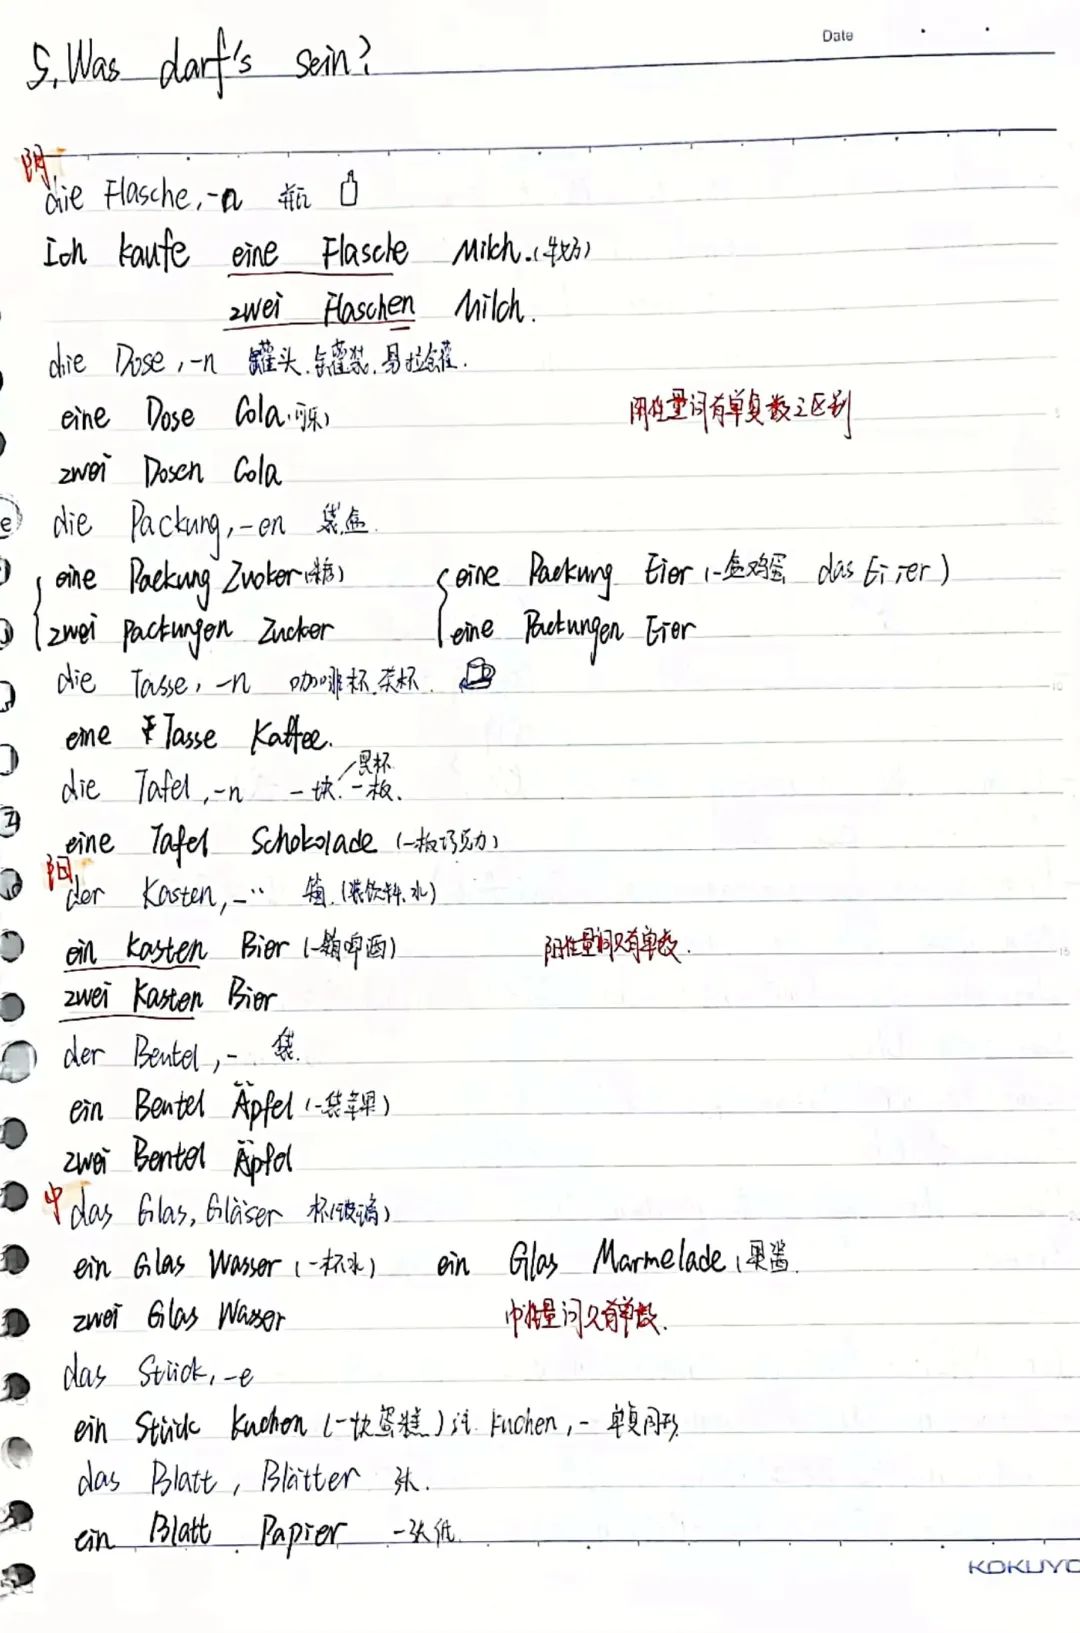 Date
5. Was darf's sein?
阴
die Flasche, -n 瓶
Ich kaufe eine Flasche Milch. (牛奶)
zwei Flaschen Milch.
die Dose, -n 罐头. 罐装. 易拉罐.
eine Dose Cola (可乐) 阴性量词有单复数之区别
zwei Dosen Cola
die Packung, -en 袋.盒.
eine Packung Zucker (糖) eine Packung Eier (一盒鸡蛋 das Ei, -er)
zwei Packungen Zucker eine Packungen Eier
die Tasse, -n 咖啡杯.茶杯.
eine Tasse Kaffee.
die Tafel, -n 一块. 一板.
eine Tafel Schokolade (一板巧克力)
阳
der Kasten, -¨ 箱. (装饮料.水)
ein Kasten Bier (一箱啤酒) 阳性量词只有单数.
zwei Kasten Bier
der Beutel, - 袋.
ein Beutel Äpfel (一袋苹果)
zwei Beutel Äpfel
中
das Glas, Gläser 杯(玻璃)
ein Glas Wasser (一杯水) ein Glas Marmelade (果酱.
zwei Glas Wasser 中性量词只有单数.
das Stück, -e
ein Stück Kuchen (一块蛋糕) 注. Kuchen, - 单复同形
das Blatt, Blätter 张.
ein Blatt Papier 一张纸.
KOKUYO